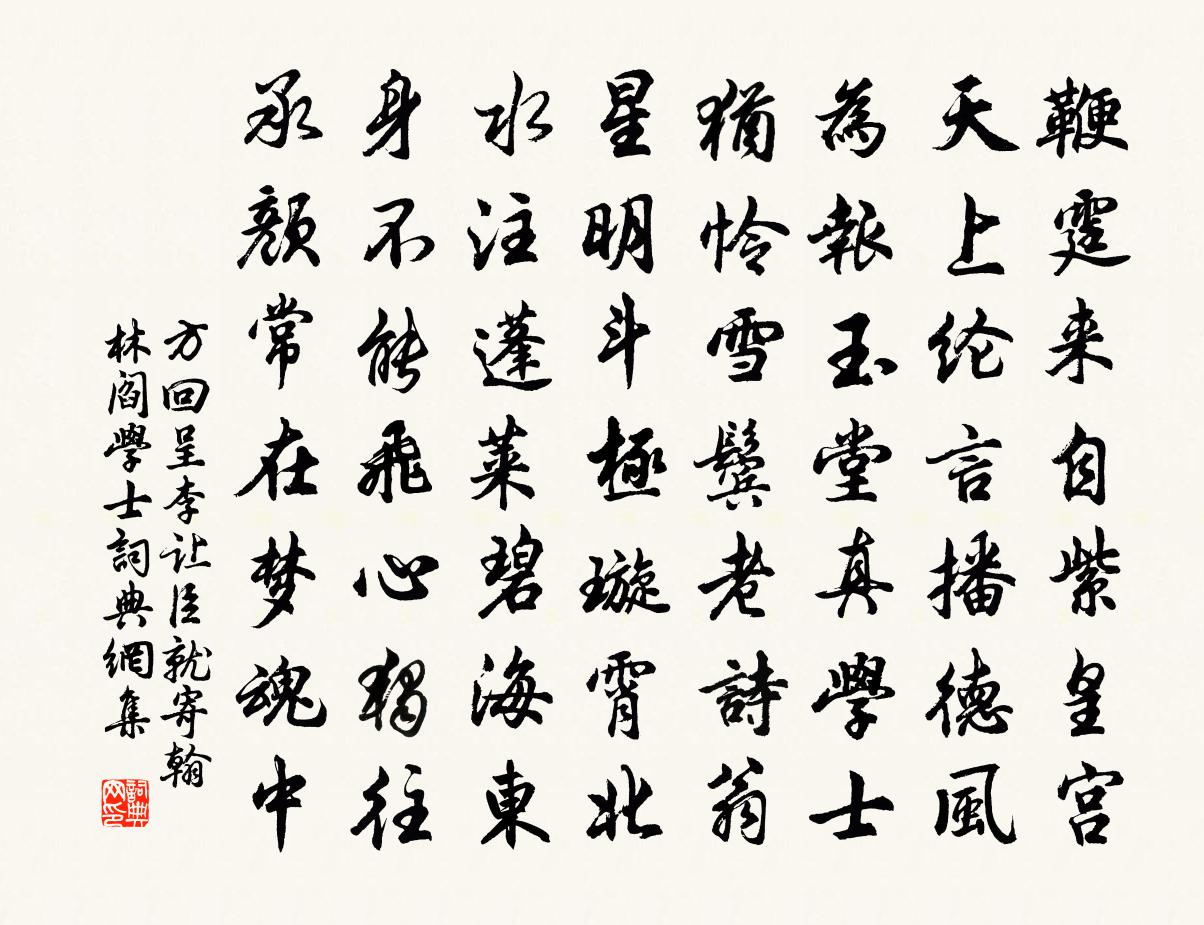 鞭霆来自紫皇宫
天上纶言播德風
為報玉堂真學士
猶怜雪鬓老詩翁
星明斗極璇霄北
水注蓬莱碧海東
身不能飛心獨往
承顏常在梦魂中
方回呈李让臣就寄翰
林阎學士詞典網集
詞典
网印